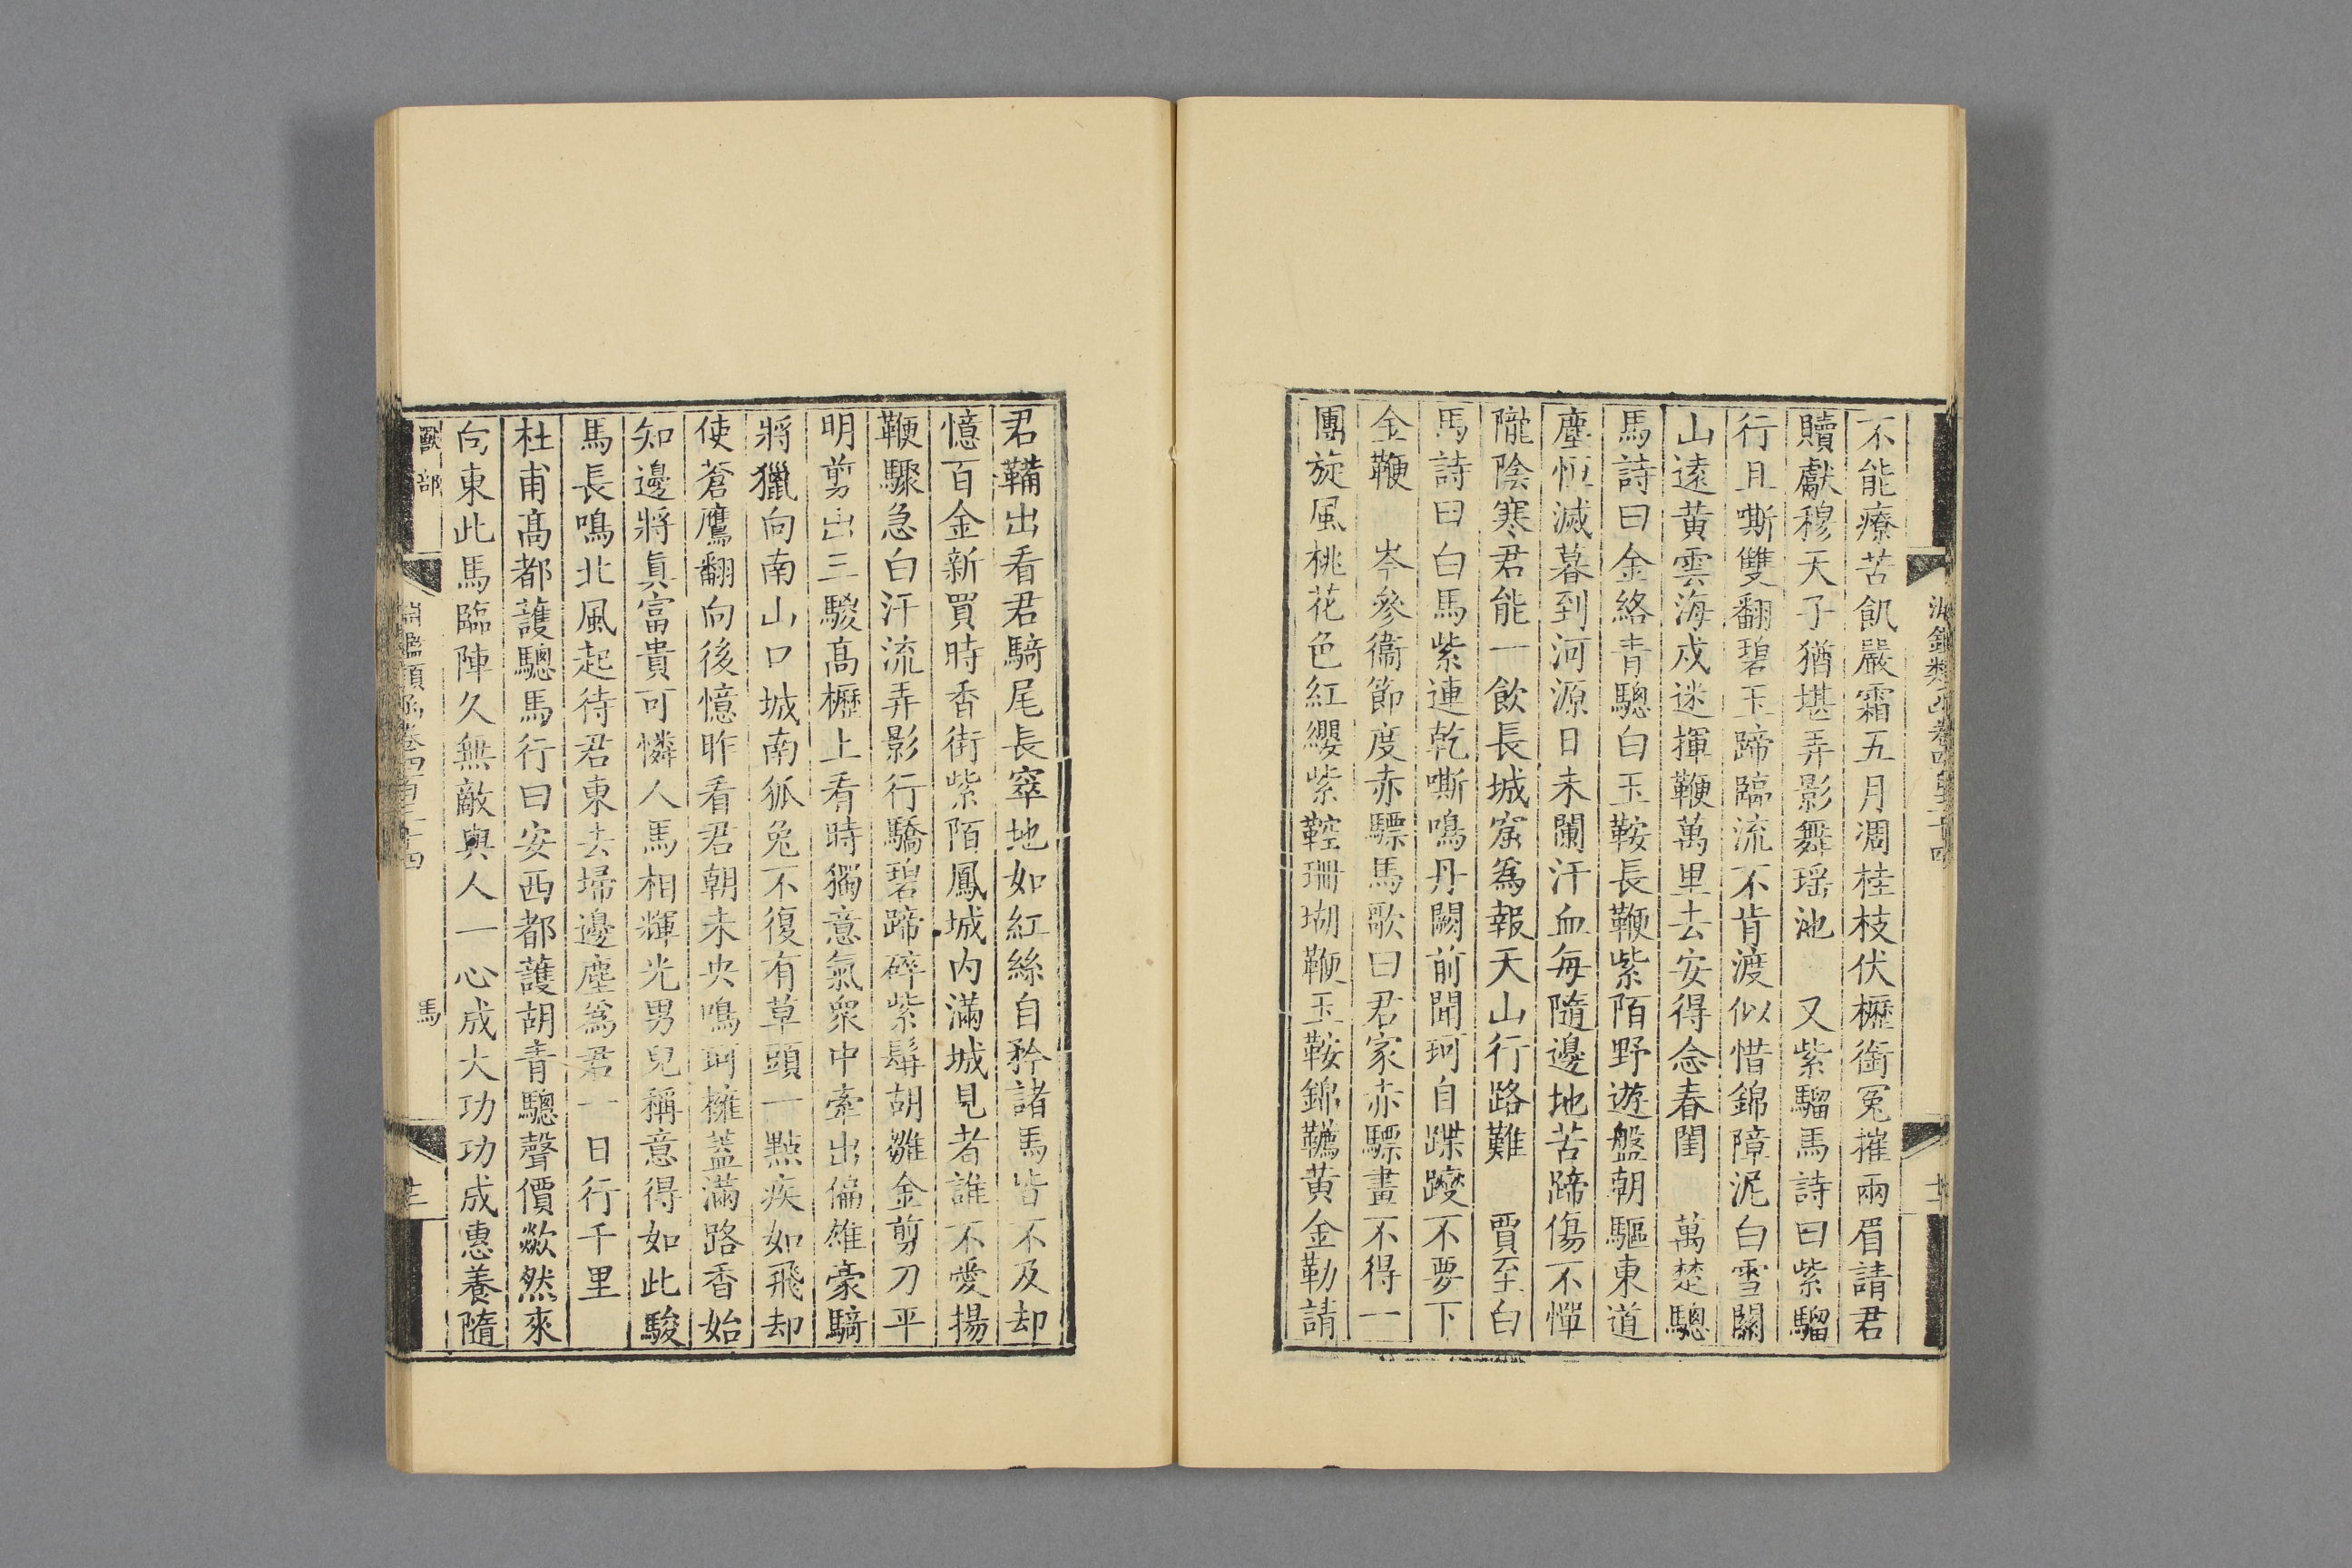 不能療苦飢嚴霜五月凋桂枝伏櫪銜冤摧兩眉請君
贖獻穆天子猶堪弄影舞瑶池　又紫騮馬詩曰紫騮
行且嘶雙翻碧玉蹄臨流不肯渡似惜錦障泥白雪關
山遠黄雲海戍迷揮鞭萬里去安得念春閨　萬楚驄
馬詩曰金絡青驄白玉鞍長鞭紫陌野遊盤朝驅東道
塵恒滅暮到河源日未闌汗血每隨邊地苦蹄傷不憚
隴陰寒君能一飲長城窟爲報天山行路難　賈至白
馬詩曰白馬紫連乾嘶鳴丹闕前聞珂自蹀躞不要下
金鞭　岑參衞節度赤驃馬歌曰君家赤驃畫不得一
團旋風桃花色紅纓紫鞚珊瑚鞭玉鞍錦韉黄金勒請
君鞴出看君騎尾長窣地如紅絲自矜諸馬皆不及却
憶百金新買時香街紫陌鳳城内滿城見者誰不愛揚
鞭驟急白汗流弄影行驕碧蹄碎紫髯胡雛金剪刀平
明剪出三鬉高櫪上看時獨意氣衆中牽出偏雄豪騎
將獵向南山口城南狐兔不復有草頭一點疾如飛却
使蒼鷹翻向後憶昨看君朝未央鳴珂擁蓋滿路香始
知邊將眞富貴可憐人馬相輝光男兒稱意得如此駿
馬長鳴北風起待君東去掃邊塵爲君一日行千里
杜甫高都護驄馬行曰安西都護胡青驄聲價歘然來
向東此馬臨陣久無敵與人一心成大功功成惠養隨
獸部
淵鑑類函卷四百三十四
馬